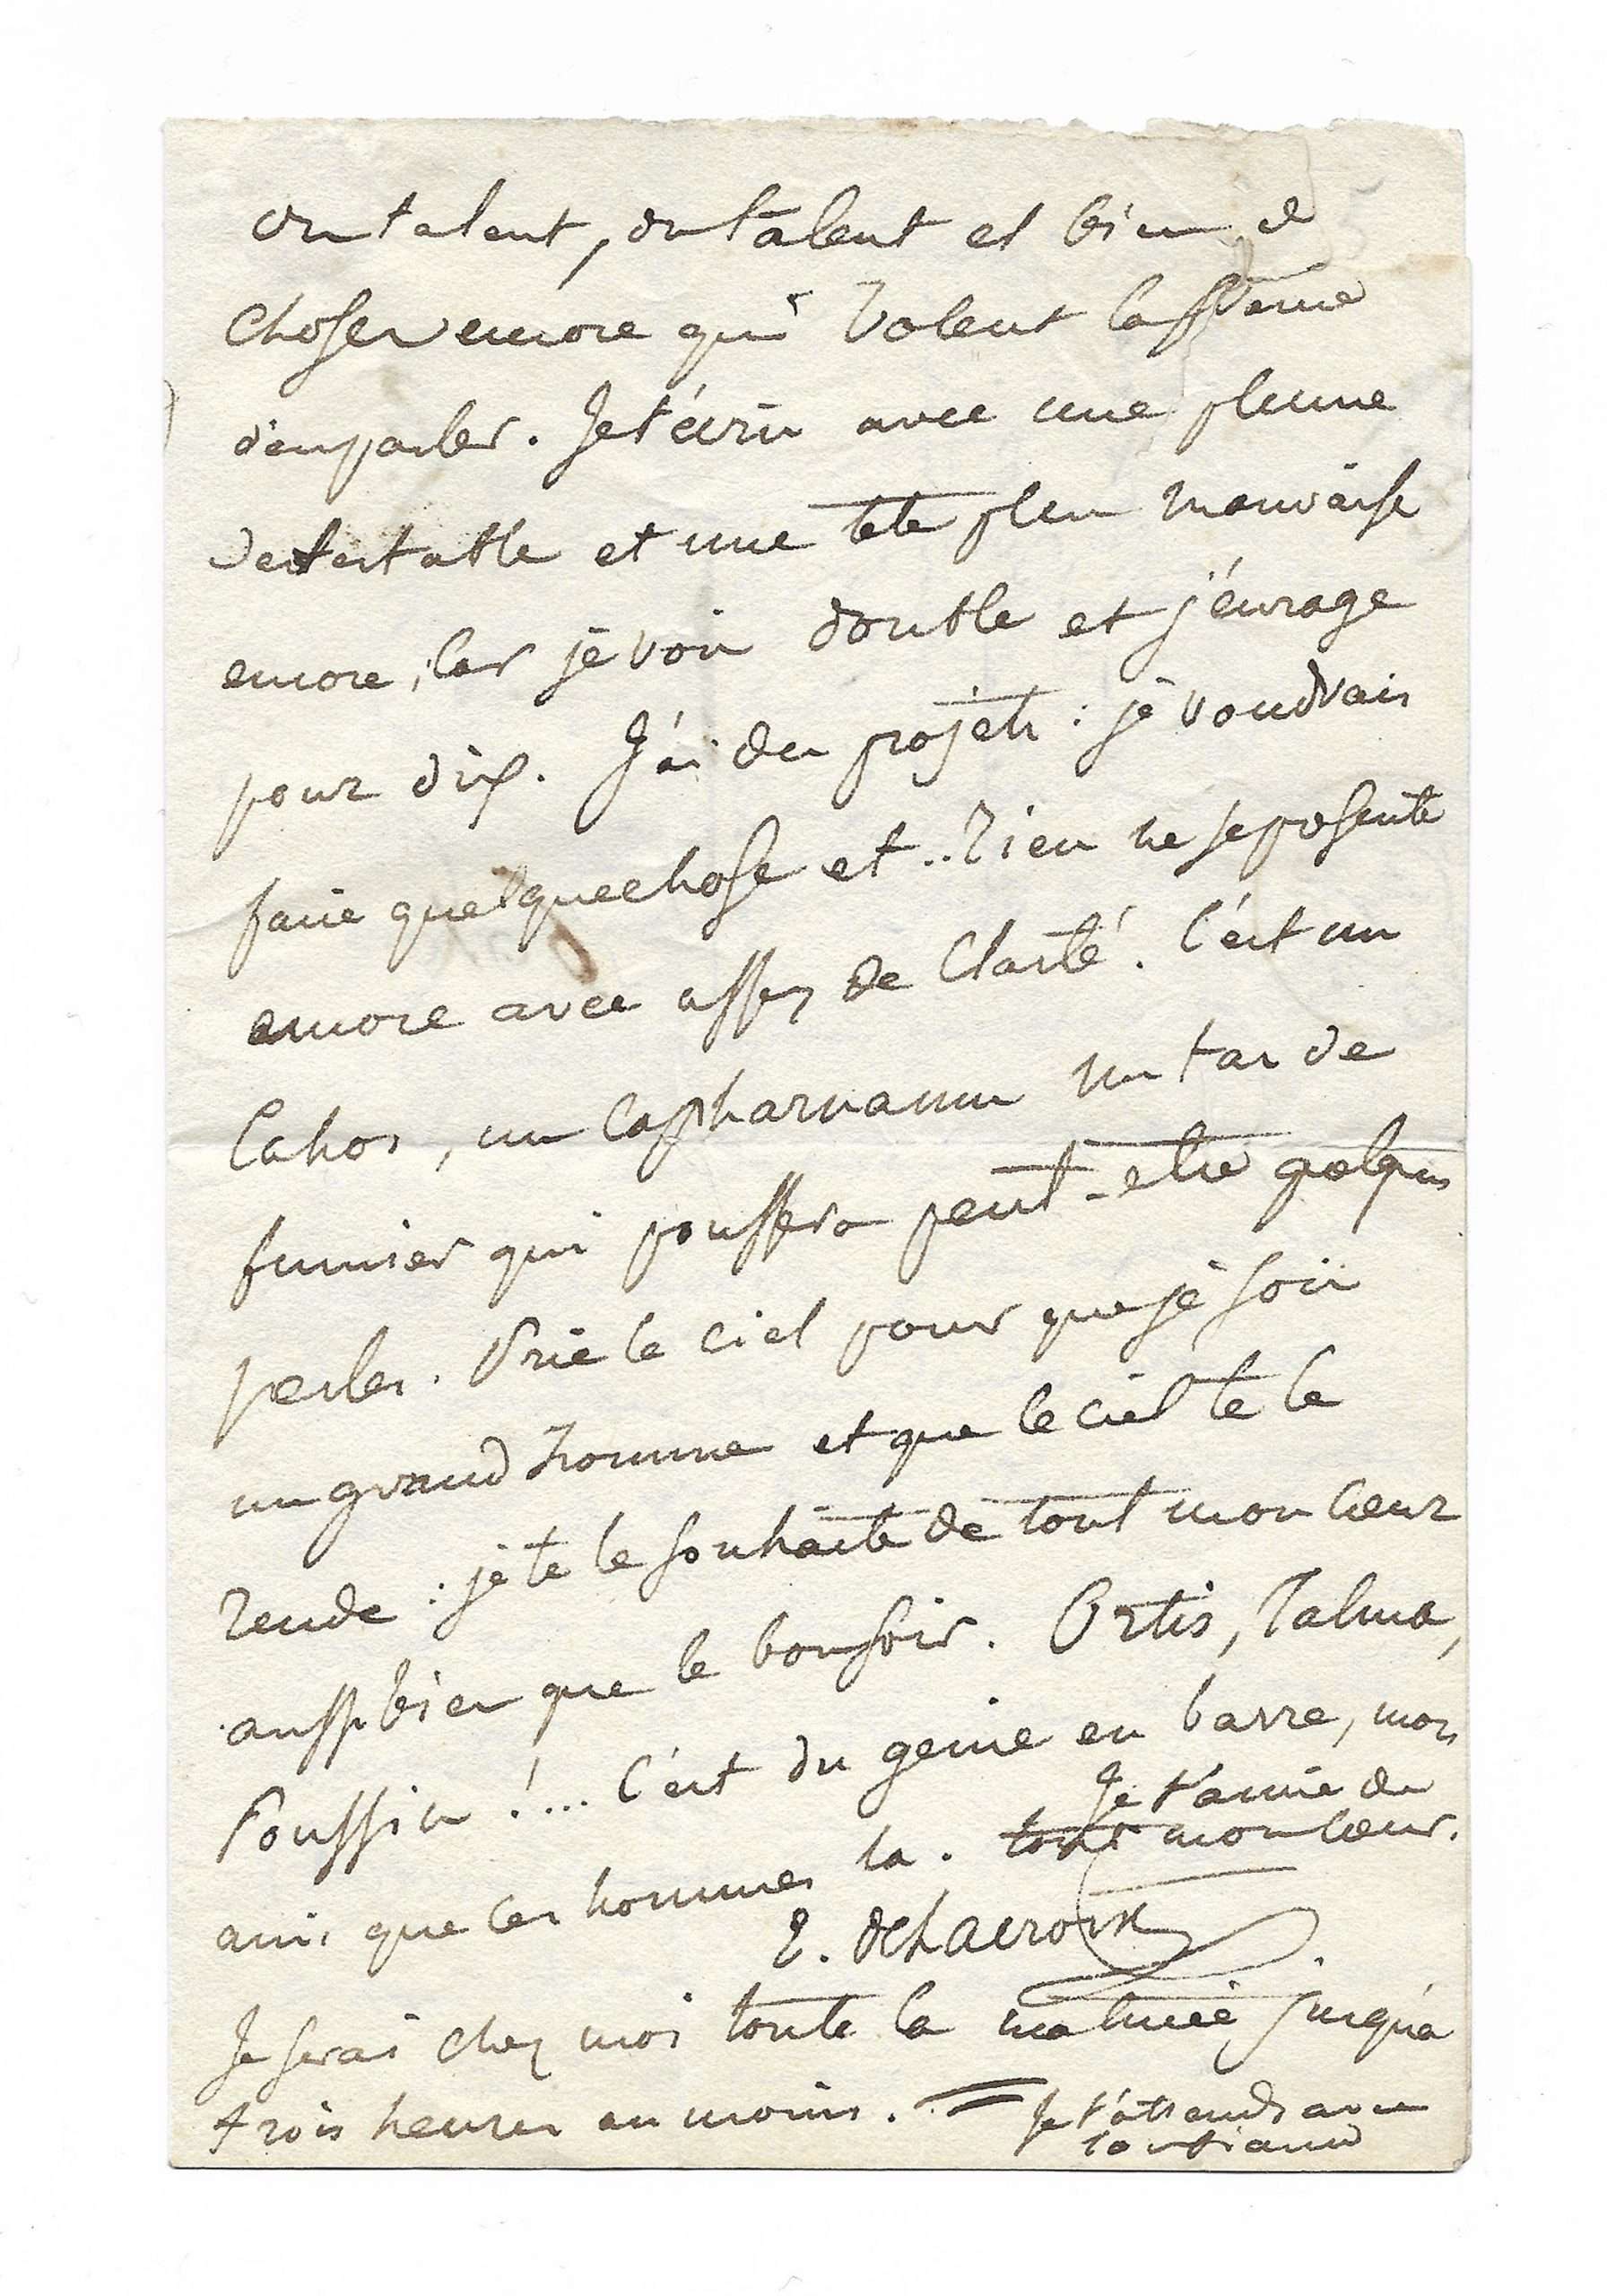 du talent, du talent et bien d
choses encore qui valent la peine
d'en parler. Je t'écris avec une plume
detestable et une tete plus mauvaise
encore, car je vois double et j'enrage
pour dix. J'ai des projets : je voudrais
faire quelque chose et .. rien ne se presente
encore avec assez de clarté. C'est un
cahos, un capharnaum un tas de
fumier qui poussera peut-etre quelques
perles. Prie le ciel pour que je sois
un grand homme et que le ciel te le
rende : je te le souhaite de tout mon coeur
aussi bien que le bonsoir. Ortis, Talma,
Poussin !... C'est du genie en barre, mon
ami que ces hommes la. Je t'aime de
tout mon coeur.
E. DeLacroix
Je serai chez moi toute la matinée jusqu'à
trois heures au moins. = Je t'attends avec